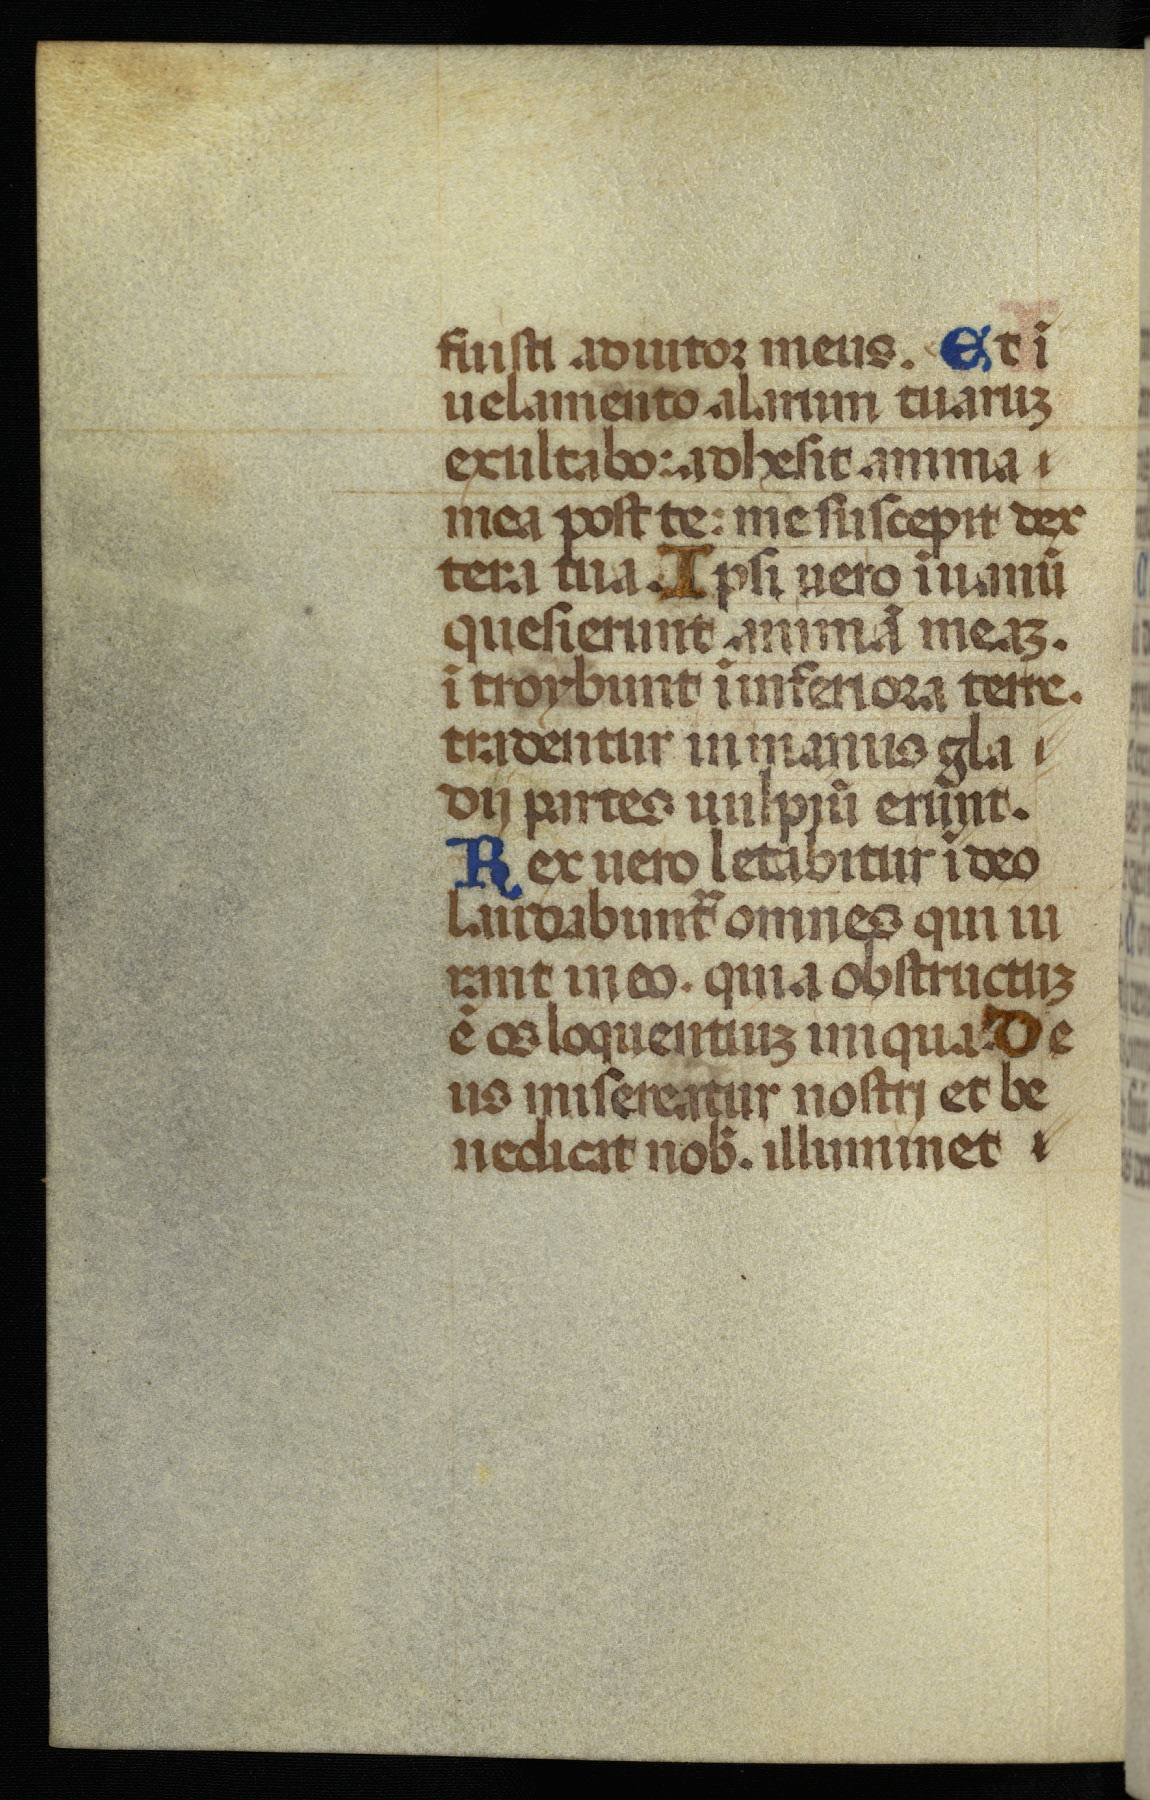 fuisti adiutor meus. Et ī
uelamento alarum tuaruꝫ
exultabo: adhesit anima
mea post te: me suscepit dex
tera tua. Ipsi uero ī uanū
quesierunt animā meaꝫ.
ītroybunt ī inferiora terre.
tradentur in manus gla
dij partes uulpiū erūnt.
Rex uero letabitur ī deo
laudabunt͛ omnes qui iu
rant in eo. quia obstructuꝫ
ē os loquentiuꝫ iniqua. De
us misereatur nostri et be
nedicat nob̄. illuminet